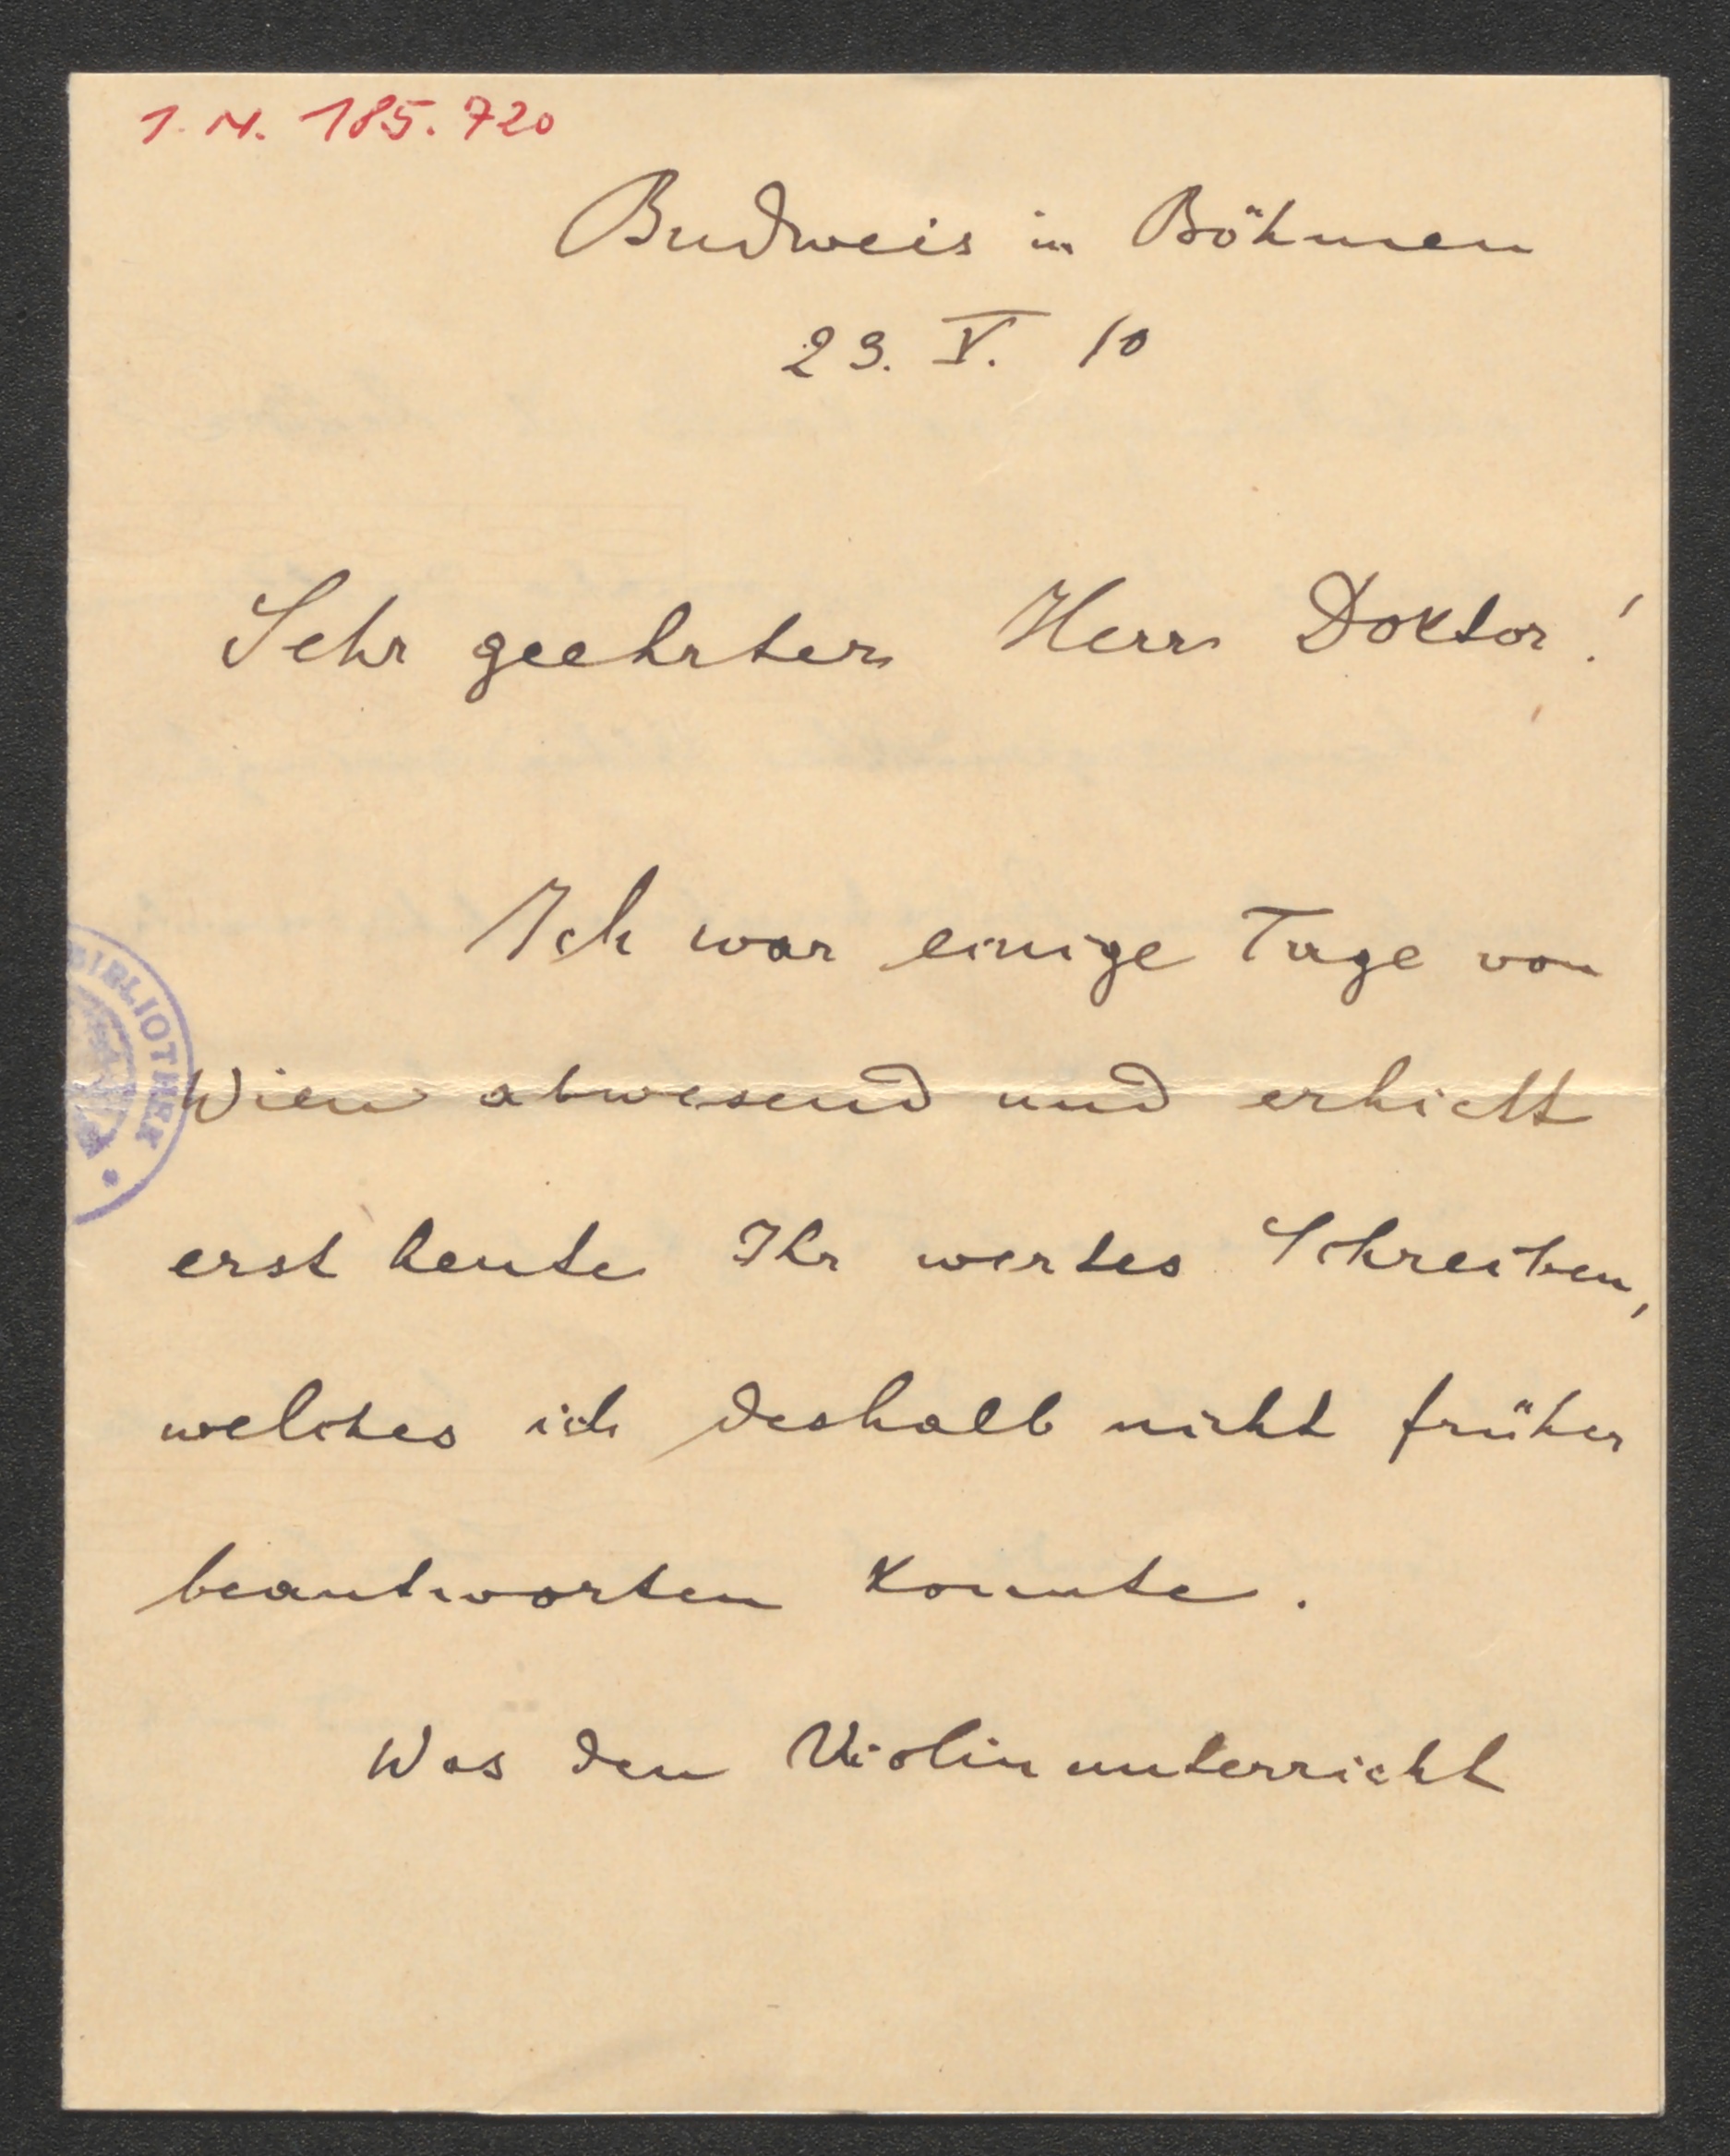 I. N. 185.720
Budweis in Böhmen
23. V. 10
Sehr geehrter Herr Doktor!
Ich war einige Tage von
Wien abwesend und erhielt
erst heute Ihr wertes Schreiben,
welches ich deshalb nicht früher
beantworten konnte.
Was den Violinunterricht
BIBLIOTHEK